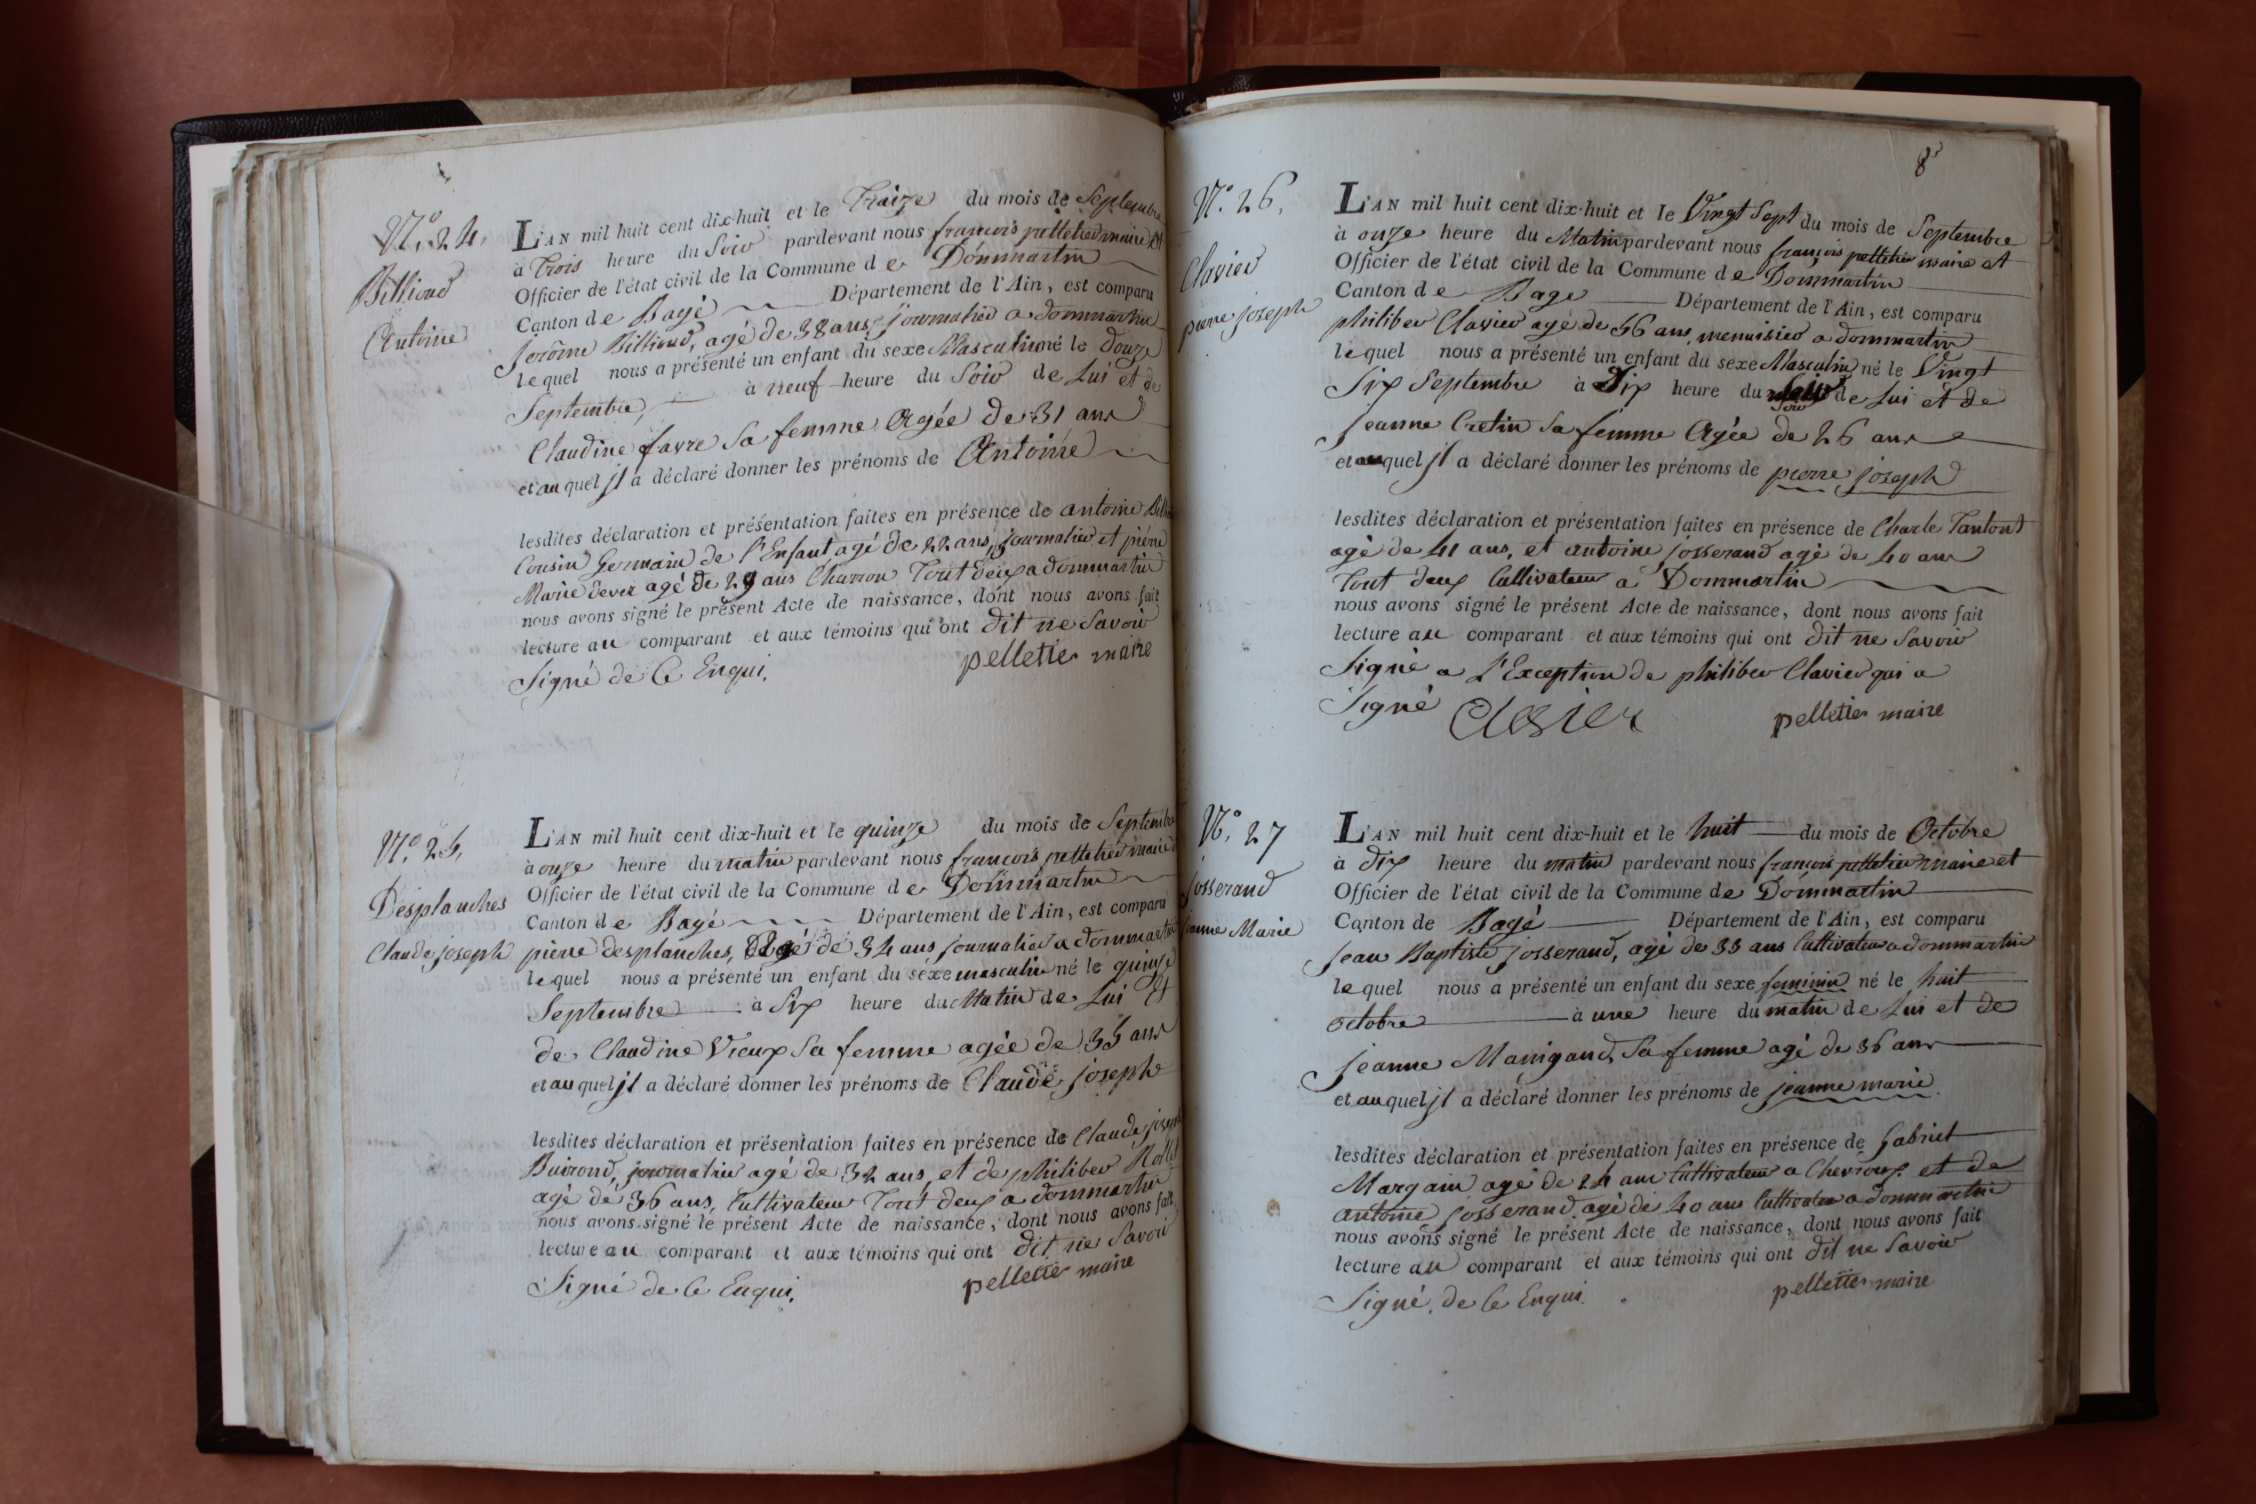 N.° 24.
Billioud
Antoine
L'AN mil huit cent dix-huit et le Traize du mois de Septembre
à Trois heure du Soir pardevant nous françois pelletier maire et
Officier de l'état civil de la Commune de Dommartin
Canton de Bagé Département de l'Ain, est comparu
jerôme Billioud, agé de 38 ans, journalier a dommartin
lequel nous a présenté un enfant du sexe Masculin né le douze
Septembre, à neuf heure du Soir de Lui et de
Claudine favre Sa femme Agée de 31 ans
et au quel jl a déclaré donner les prénoms de Antoine
lesdites déclaration et présentation faites en présence de antoine
Cousin Germain de l'Enfant agé de 22 ans, journalier et piérre
Marie agé de 29 ans Charron Tout deux a dommartin
nous avons signé le présent Acte de naissance, dont nous avons fait
lecture au comparant et aux témoins qui ont dit ne Savoir
Signé de Ce Enqui. pelletier maire
N.° 25.
Desplanches
Claude joseph
L'AN mil huit cent dix-huit et le quinze du mois de Septembre
à onze heure du matin pardevant nous francois pelletier maire
Officier de l'état civil de la Commune de Dommartin
Canton de Bagé Département de l'Ain, est comparu
piérre desplanches, agé de 34 ans journalier a dommartin
lequel nous a présenté un enfant du sexe masculin né le quinze
Septembre à Six heure du Matin de Lui Et
de Claudine Vieux Sa femme agée de 35 ans
et au quel jl a déclaré donner les prénoms de Claude joseph
lesdites déclaration et présentation faites en présence de Claude joseph
Buirond, journalier agé de 32 ans, et de philiber
agé de 36 ans, Cultivateur Tout deux a dommartin
nous avons signé le présent Acte de naissance, dont nous avons fait
lecture au comparant et aux témoins qui ont dit ne Savoir
Signé de Ce Enqui. pelletier maire
8
N.° 26.
Clavier
pierre joseph
L'AN mil huit cent dix-huit et le Vingt Sept du mois de Septembre
à onze heure du Matin pardevant nous françois pelletier maire et
Officier de l'état civil de la Commune de Dommartin
Canton de Bage Département de l'Ain, est comparu
philiber Clavier agé de 36 ans, menuisier a dommartin
lequel nous a présenté un enfant du sexe Masculin né le Vingt
Six Septembre à Dix heure du Soir de Lui et de
jeanne Cretin Sa femme Agée de 26 ans
et au quel jl a déclaré donner les prénoms de pierre joseph
lesdites déclaration et présentation faites en présence de Charle Tantont
agé de 41 ans, et antoine josserand agé de 40 ans
Tout deux Cultivateur a Dommartin
nous avons signé le présent Acte de naissance, dont nous avons fait
lecture au comparant et aux témoins qui ont dit ne Savoir
Signé a L'Exception de philiber Clavier qui a
Signé Clavier pelletier maire
N.° 27
josserand
jeanne Marie
L'AN mil huit cent dix-huit et le huit du mois de Octobre
à dix heure du matin pardevant nous françois pelletier maire et
Officier de l'état civil de la Commune de Dommartin
Canton de Bagé Département de l'Ain, est comparu
jean Baptiste josserand, agé de 33 ans Cultivateur a dommartin
lequel nous a présenté un enfant du sexe feminin né le huit
octobre à une heure du matin de Lui et de
jeanne Manigand, Sa femme agé de 36 ans
et au quel jl a déclaré donner les prénoms de jeanne marie
lesdites déclaration et présentation faites en présence de Gabriel
Margain agé de 24 ans Cultivateur a Chevroux et de
antoine josserand, agé de 40 ans Cultivateur a dommartin
nous avons signé le présent Acte de naissance, dont nous avons fait
lecture au comparant et aux témoins qui ont dit ne Savoir
Signé. de Ce Enqui. pelletier maire